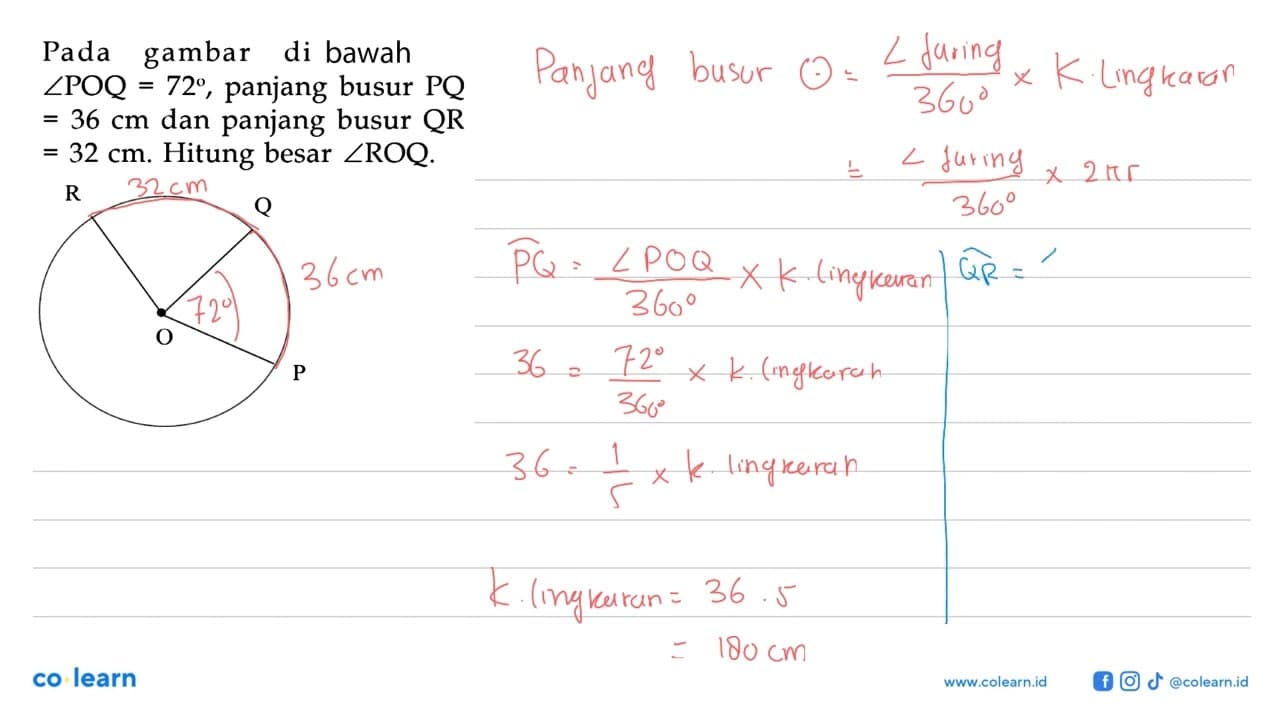 Pada gambar di bawah
∠POQ = 72°, panjang busur PQ
= 36 cm dan panjang busur QR
= 32 cm. Hitung besar ∠ROQ.
R 32 cm Q
36 cm
72°
O
P
Panjang busur ⊙ = ∠ Juring / 360° × K. Lingkaran
= ∠ Juring / 360° × 2πr
P͡Q = ∠POQ / 360° × k. lingkaran
36 = 72° / 360° × k. lingkaran
36 = 1/5 × k. lingkaran
k. lingkaran = 36 . 5
= 180 cm
Q͡R =
co learn
www.colearn.id
@colearn.id